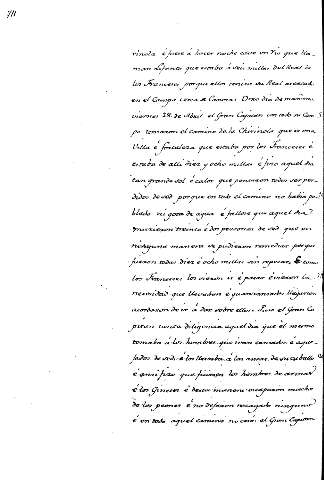 vincia é fuese á hacer noche cave un rio que lla-
man Lofanto que estaba á seis millas del Real de
los Franceses porque ellos tenian su Real asentado
en el Campo cerca de Canosa. Otro dia de mañana
viernes 28 de Abril el Gran Capitan con todo su Cam-
po tomaron el camino de la Chirinola que es una
Villa é fortaleza que estaba por los Franceses é
estaba de alli diez y ocho millas é hizo aquel dia
tan grande sol é calor que pensaron todos ser per-
didos de sed porque en todo el camino no habia po-
blado ni gota de agua é fallose que aquel dia
murieron treinta é dos personas de sed que en
ninguna manera se pudieron remediar porque
fueron todas diez é ocho millas sin reposar. E como
los Franceses los vieron ir é pasar é vieron la
necesidad que llevaban é quan cansados llegarian
acordaron de ir á dar sobre ellos. Puso el Gran Ca-
pitan tanta diligencia aquel dia que él mesmo
tomaba á los hombres que iban cansados é aque-
jados de sed é los llevaba á las ancas de su caballo
é ansi fizo que ficiesen los hombres de armas
é los Ginetes é desta manera escaparon muchos
de los peones é no dejaron rezagado ninguno
é en todo aquel camino no cesó el Gran Capitan